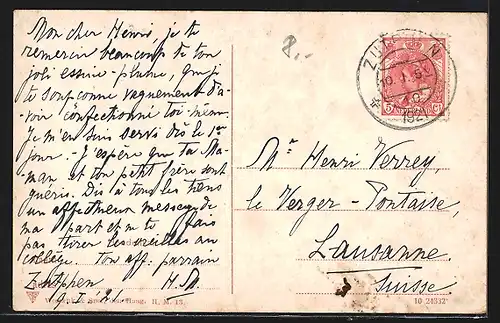 Mon cher Henri, je te
remercie beaucoup de ton
joli essuie-plume, que je
te soupçonne vaguement d'a-
voir confectionné toi-même.
Je m'en suis servi dès le 1er
jour. - J'espère que ta Ma-
man et ton petit frère sont
guéris. Dis à tous les tiens
un affectueux message de
ma part et ne te fais
pas tirer les oreilles au
collège. Ton aff. parrain
Zutphen H. M.
8.-
ZUTPHEN
10.1.
Mr Henri Verrey,
le Verger-Pontaise,
Lausanne.
Suisse
H. M. 13.
10 24332